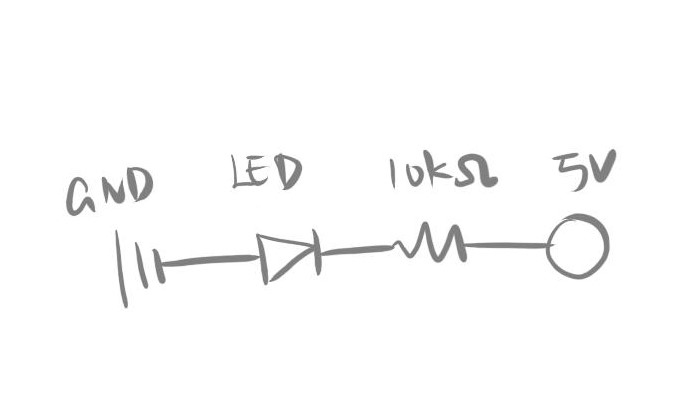 GND LED 10kΩ 5V